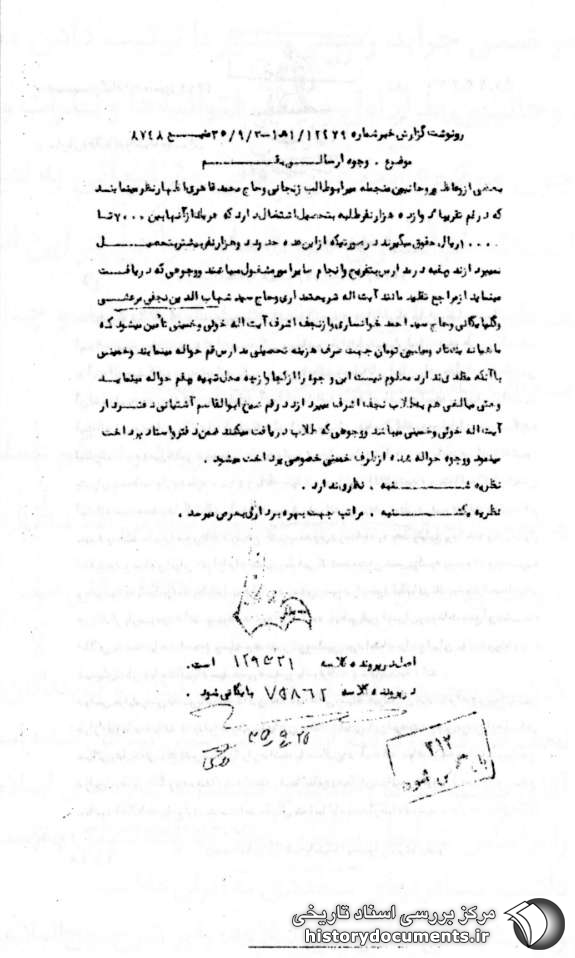 رونوشت گزارش خبر شماره ۱۲۴۷۹/ه۱ - ۳۵/۹/۲۰
موضوع . وجوه ارسالی بقم
بعضی از وعاظ و روحانیون منجمله میرابوطالب زنجانی وحاج محمد اظهارنظر مینمایند
که در قم تقریبا دوازده هزارنفرطلبه بتحصیل اشتغال دارد که هریک از آنها بین ۷۰۰۰ تا
۱۰۰۰۰ریال حقوق میگیرند در صورتیکه ازاین عده حدود دوهزارنفر بیشترتحصیل
نمیکنند وبقیه درمدارس بتفریح وانجام سایر امور مشغول میباشند ووجوهی که دریافت
مینماید از مراجع تقلید مانند آیت اله شریعتمداری وحاج سید شهاب الدین نجفی مرعشی
وگلپایگانی وحاج سید احمد خوانساری وازنجف اشرف آیت اله خوئی وخمینی تأمین میشود که
ماهیانه میلیون تومان جهت هزینه تحصیلی مدارس قم حواله مینمایند وخمینی
باآنکه مقلدی ندارد معلوم نیست این وجوه را ازکجا وازچه محل تهیه وبقم حواله مینماید
وحتی مبالغی هم بطلاب نجف اشرف میپردازد درقم شیخ ابوالقاسم آشتیانی دفتردار
آیت اله خوئی وخمینی میباشد ووجوهی که طلاب دریافت میکنند ضمن دفترواسناد پرداخت
میشود ووجوه حواله شده ازطرف خمینی خصوصی پرداخت میشود .
نظریه شنبه . نظری ندارد .
نظریه یکشنبه . مراتب جهت بهره برداری بعرض میرسد .
اصل در پرونده کلاسه ۱۲۹۵۳۱ است.
در پرونده کلاسه ۷۵۸۶۲ بایگانی شود .
۳۱۲
بایگانی شود
مرکز بررسی اسناد تاریخی
historydocuments.ir